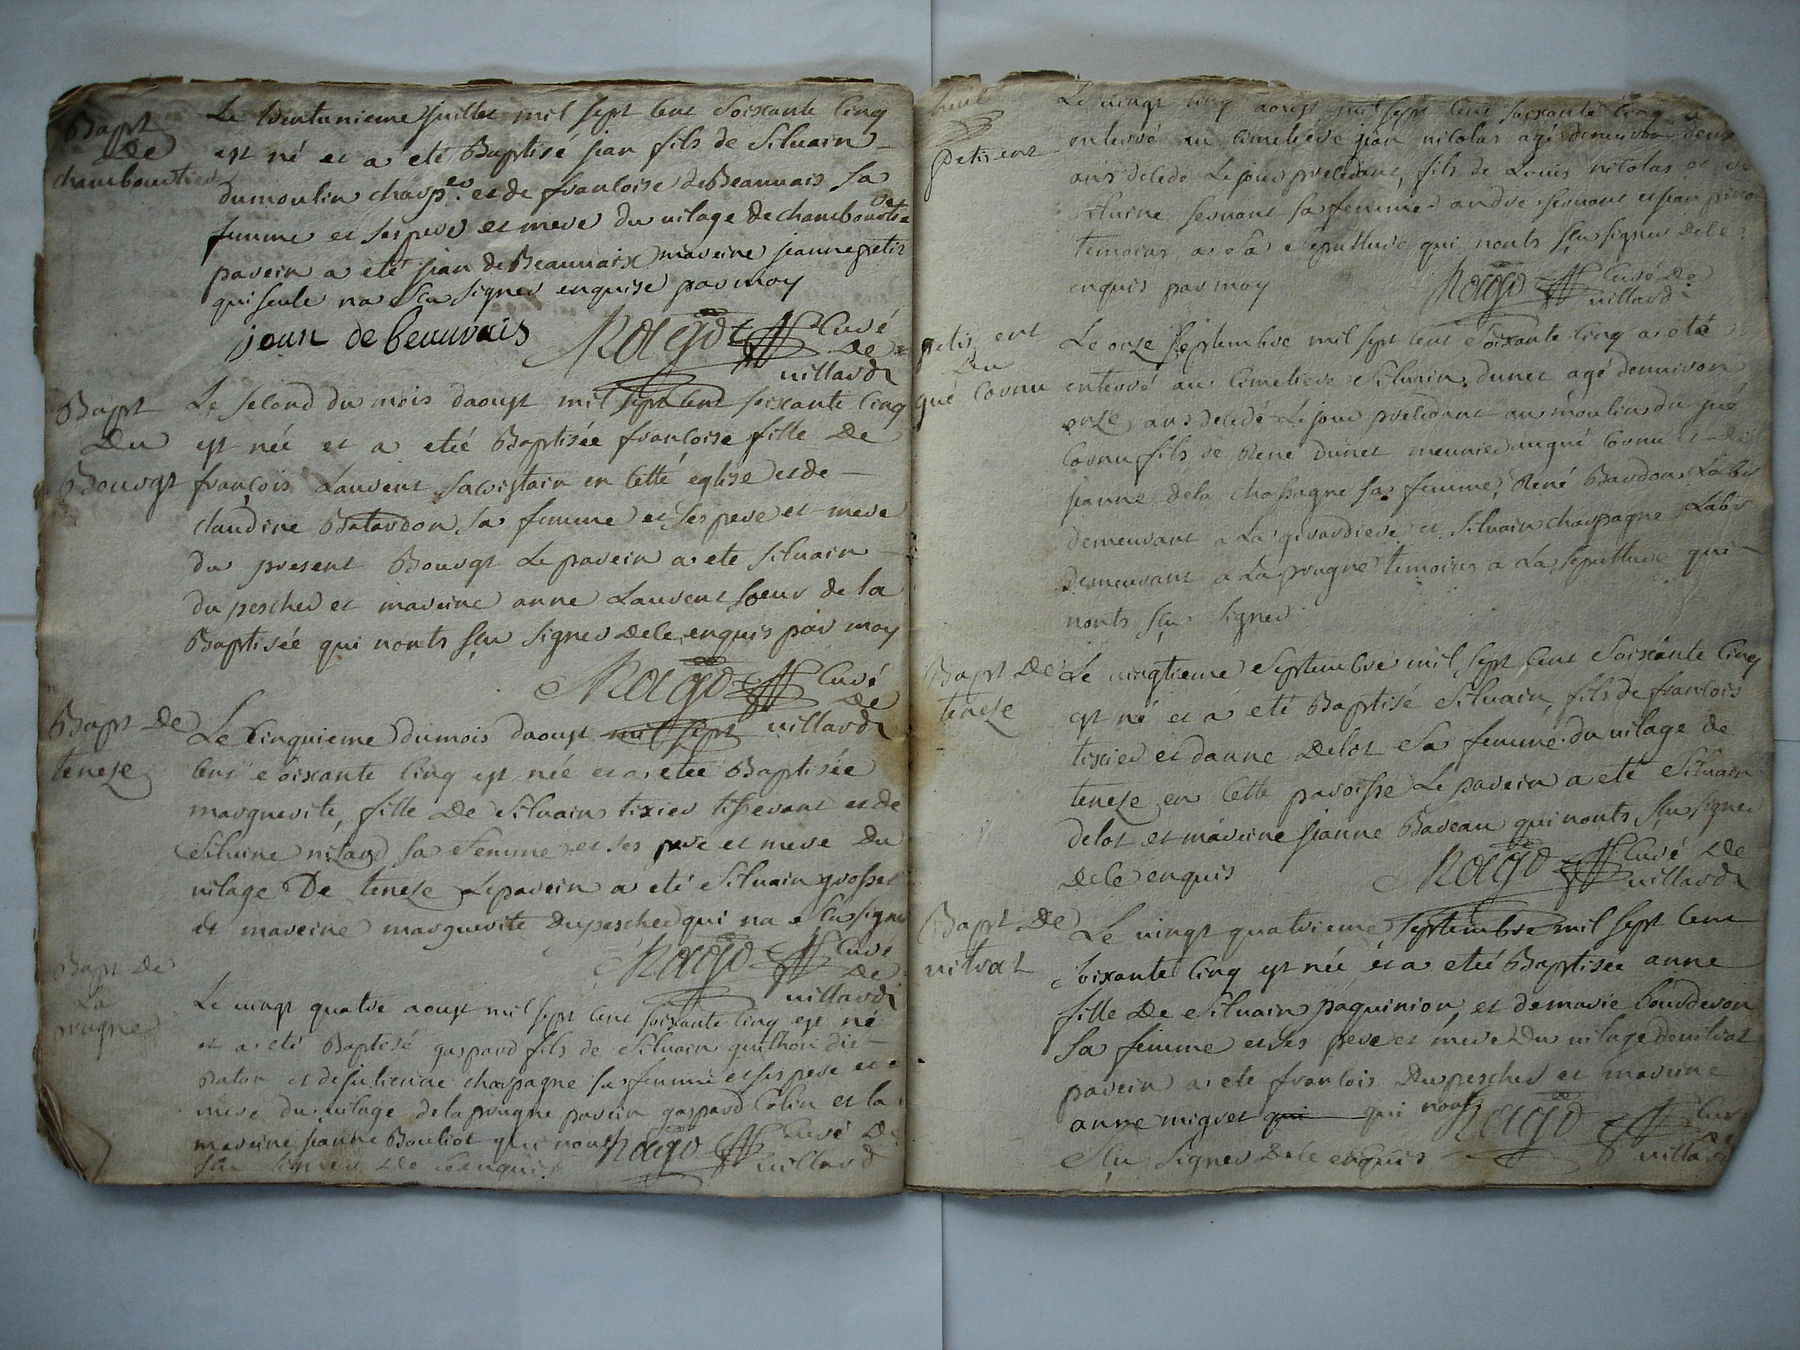 Bapt
De
chamboutier
Le trentunieme juillet mil sept cent soixante cinq
est né et a eté Baptisé jean fils de Siluain
dumoulin charp.er et de francoise de Beauuais sa
femme et ses pere et mere du uilage de
parein a été jean de Beauuaix mareine jeanne petit
qui seule na scu signer enquise par moy
jean de beauvais Rago Curé
De
uillard
Bapt
Du
Bourgt
Le second du mois daoust mil sept cent soixante cinq
est née et a etéé Baptisée françoise fille De
françois Laurent sacristain en cette eglise et de
claudine Batardon sa femme et ses pere et mere
du present Bourgt Le parein a ete siluain
du pescher et mareine anne Laurent soeur de la
Baptisée qui nonts scu signer de ce enquis par moy
Rago Curé
De
uillard
Bapt De
teneze
Le Cinquieme du mois daoust mil sept
cent soixante cinq est née et a etee Baptisée
marguerite, fille De Siluain tixier tisserant et de
Siluine nizard sa femme et ses pere et mere Du
uilage De teneze Le parein a eté Siluain grosset
et mareine marguerite Dupescher qui na scu signer
Rago Curé
De
uillard
Bapt De
La
prugne
Le uingt quatre aoust mil sept cent soixante cinq est né
et a eté Baptisé gaspard fils de Siluain
et de julienne chapagne sa femme et ses pere et
mere du uilage de la prugne parein gaspard Colin et la
mareine jeanne Bouliot qui nonts Rago Curé De
scu signer De ce enquis uillard
petit ent
Le uingt cinq aoust mil sept cent soixante cinq a
enterré au cimetiere jean nicolas agé denuiron deux
ans decedé Le jour precedant, fils de Louis nicolas et de
siluine seruant sa femme andre seruant et jean
temoins a La sepulture qui nonts scu signer de ce
enquis par moy Rago Curé De
uillard
petit ent
Du
gué Cornu
Le onze septembre mil sept cent soixante cinq a eté
enterré au cimetiere Siluain dunet agé denuiron
onze ans decedé Le jour precedant au moulin du gué
Cornu fils de René dunet meunier au gué Cornu et De
jeanne dela chassagne sa femme, René Bardon Labr
demeurant a La girardiere et Siluain chapagne Labr
Demeurant a La prugne temoins a La sepulture qui
nonts scu signer
Bapt De
teneze
Le uingtieme septembre mil sept cent soixante cinq
est né et a eté Baptisé Siluain, fils de francois
tixier et danne delot sa femme du uilage de
teneze en cette paroisse Le parein a eté Siluain
delot et mareine jeanne Baveau qui nonts scu signer
De ce enquis Rago Curé De
uillard
Bapt De
nitrat
Le uingt quatrieme septembre mil sept cent
soixante cinq est née et a etéé Baptisée anne
fille De Siluain paquinion, et de marie bourderon
sa femme et ses pere et mere Du uilage de nitrat
parein a ete francois Dupescher et mareine
anne migret qui qui nonts Rago Curé
De
scu signer De ce enquis uillard